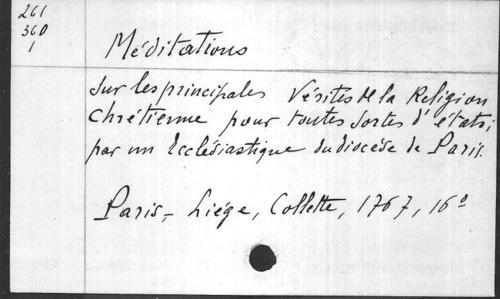 261
360
1
Méditations
sur les principales Vérités de la Religion
Chrétienne pour toutes sortes d'états;
par un Ecclésiastique du diocèse de Paris.
Paris, Liége, Collette, 1767, 16º